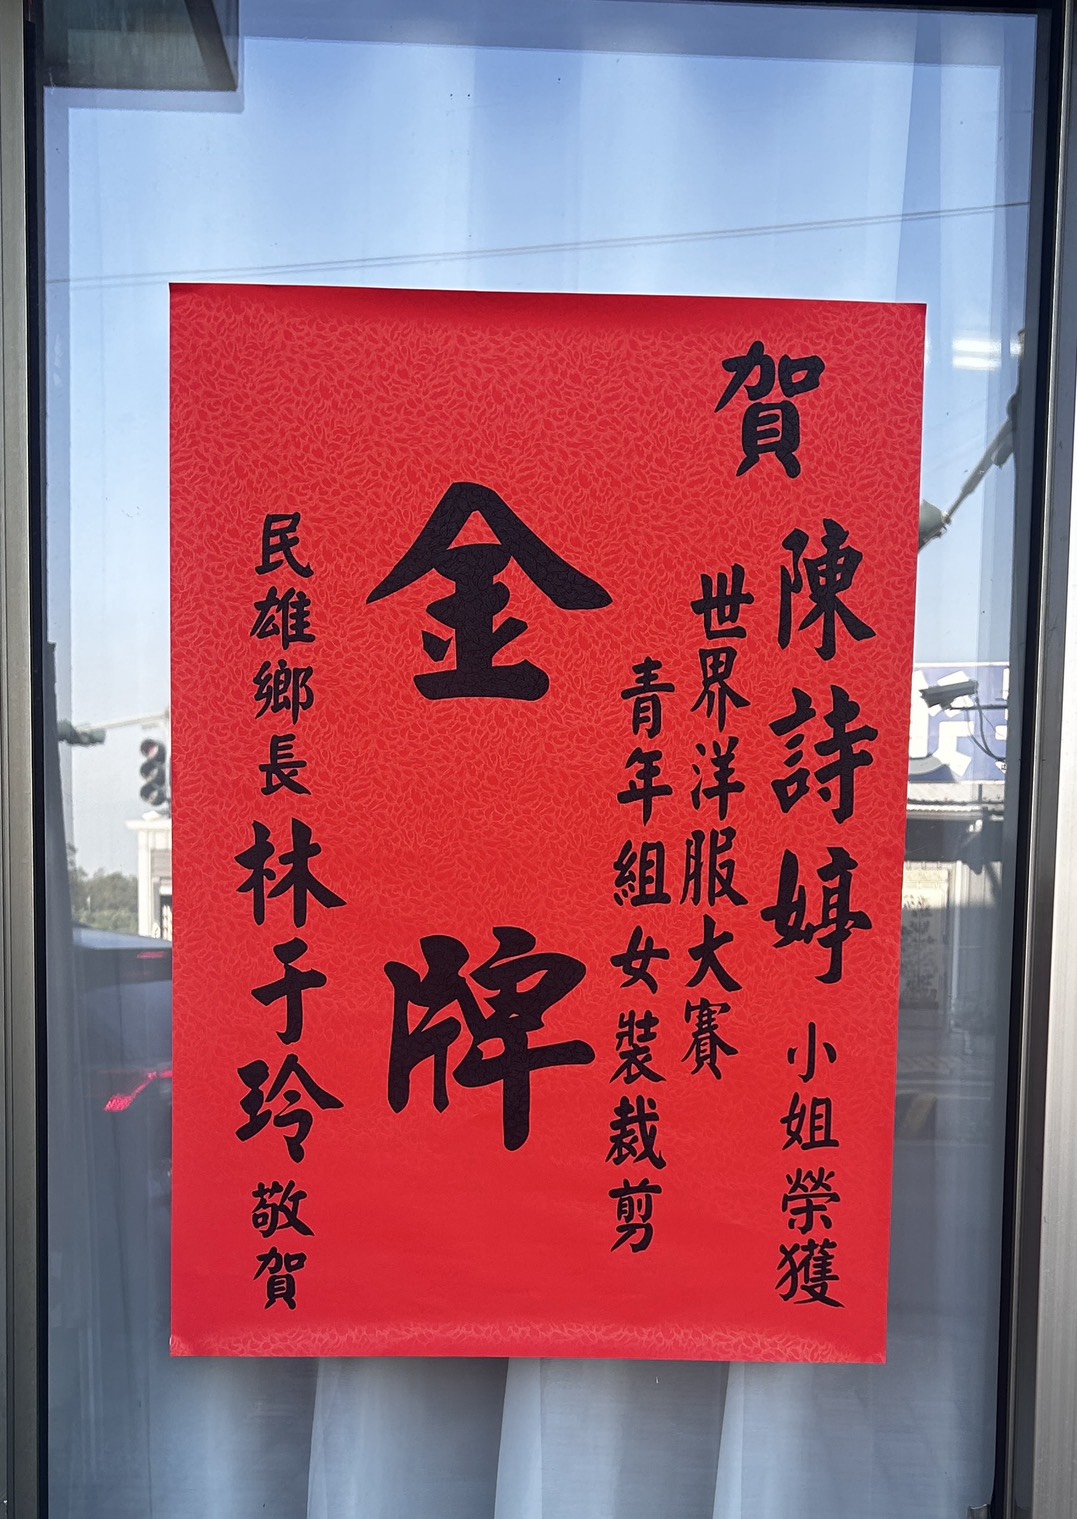 賀
陳詩婷小姐榮獲
世界洋服大賽
青年組女裝裁剪
金牌
民雄鄉長林于玲敬賀